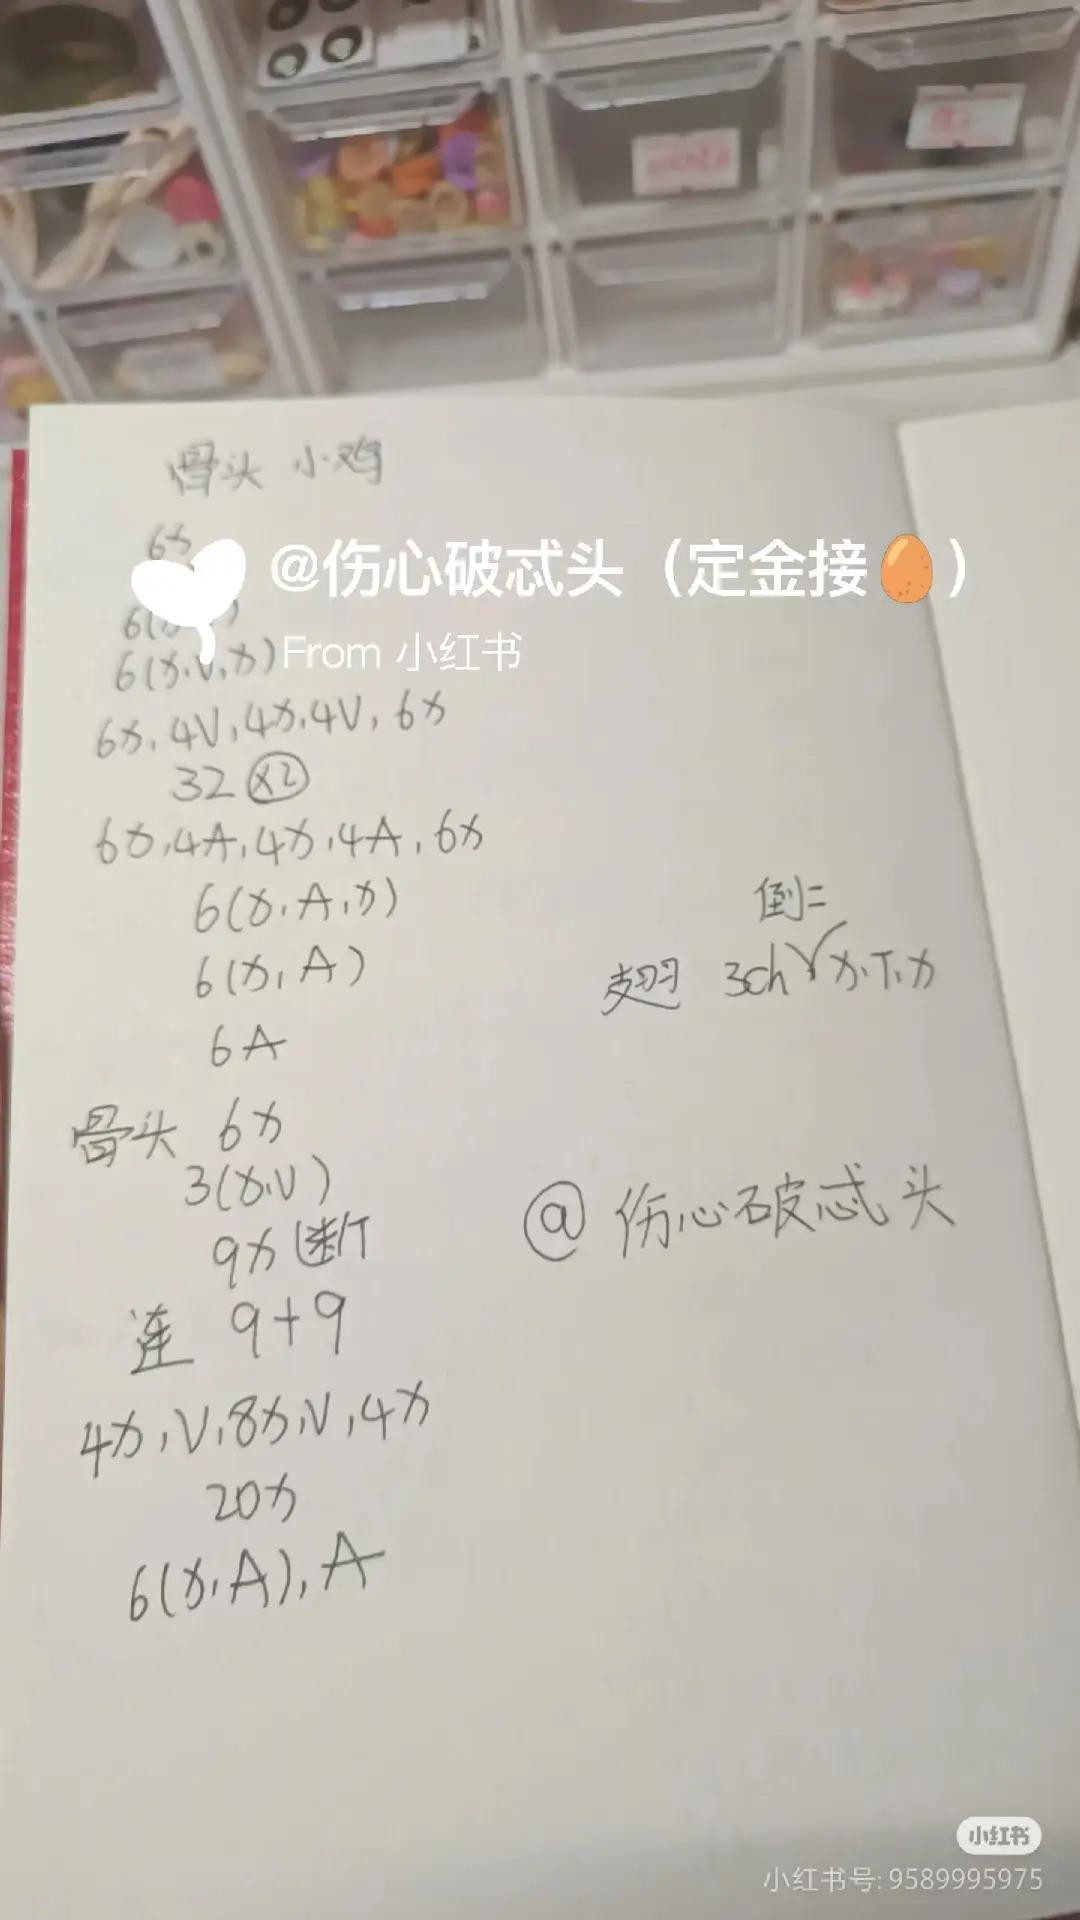 骨头 小鸡
6x
@伤心破忒头（定金接🥚）
6(x
From 小红书
6(x.V.x)
6x, 4V, 4x, 4V, 6x
32 ×2
6x, 4A, 4x, 4A, 6x
6(x, A, x)
6(x, A)
6A
倒二
翅 3ch x, T, x
骨头 6x
3(x.V)
9x 断
连 9+9
4x, V, 8x, V, 4x
20x
6(x, A), A
@伤心破忒头
小红书
小红书号: 9589995975